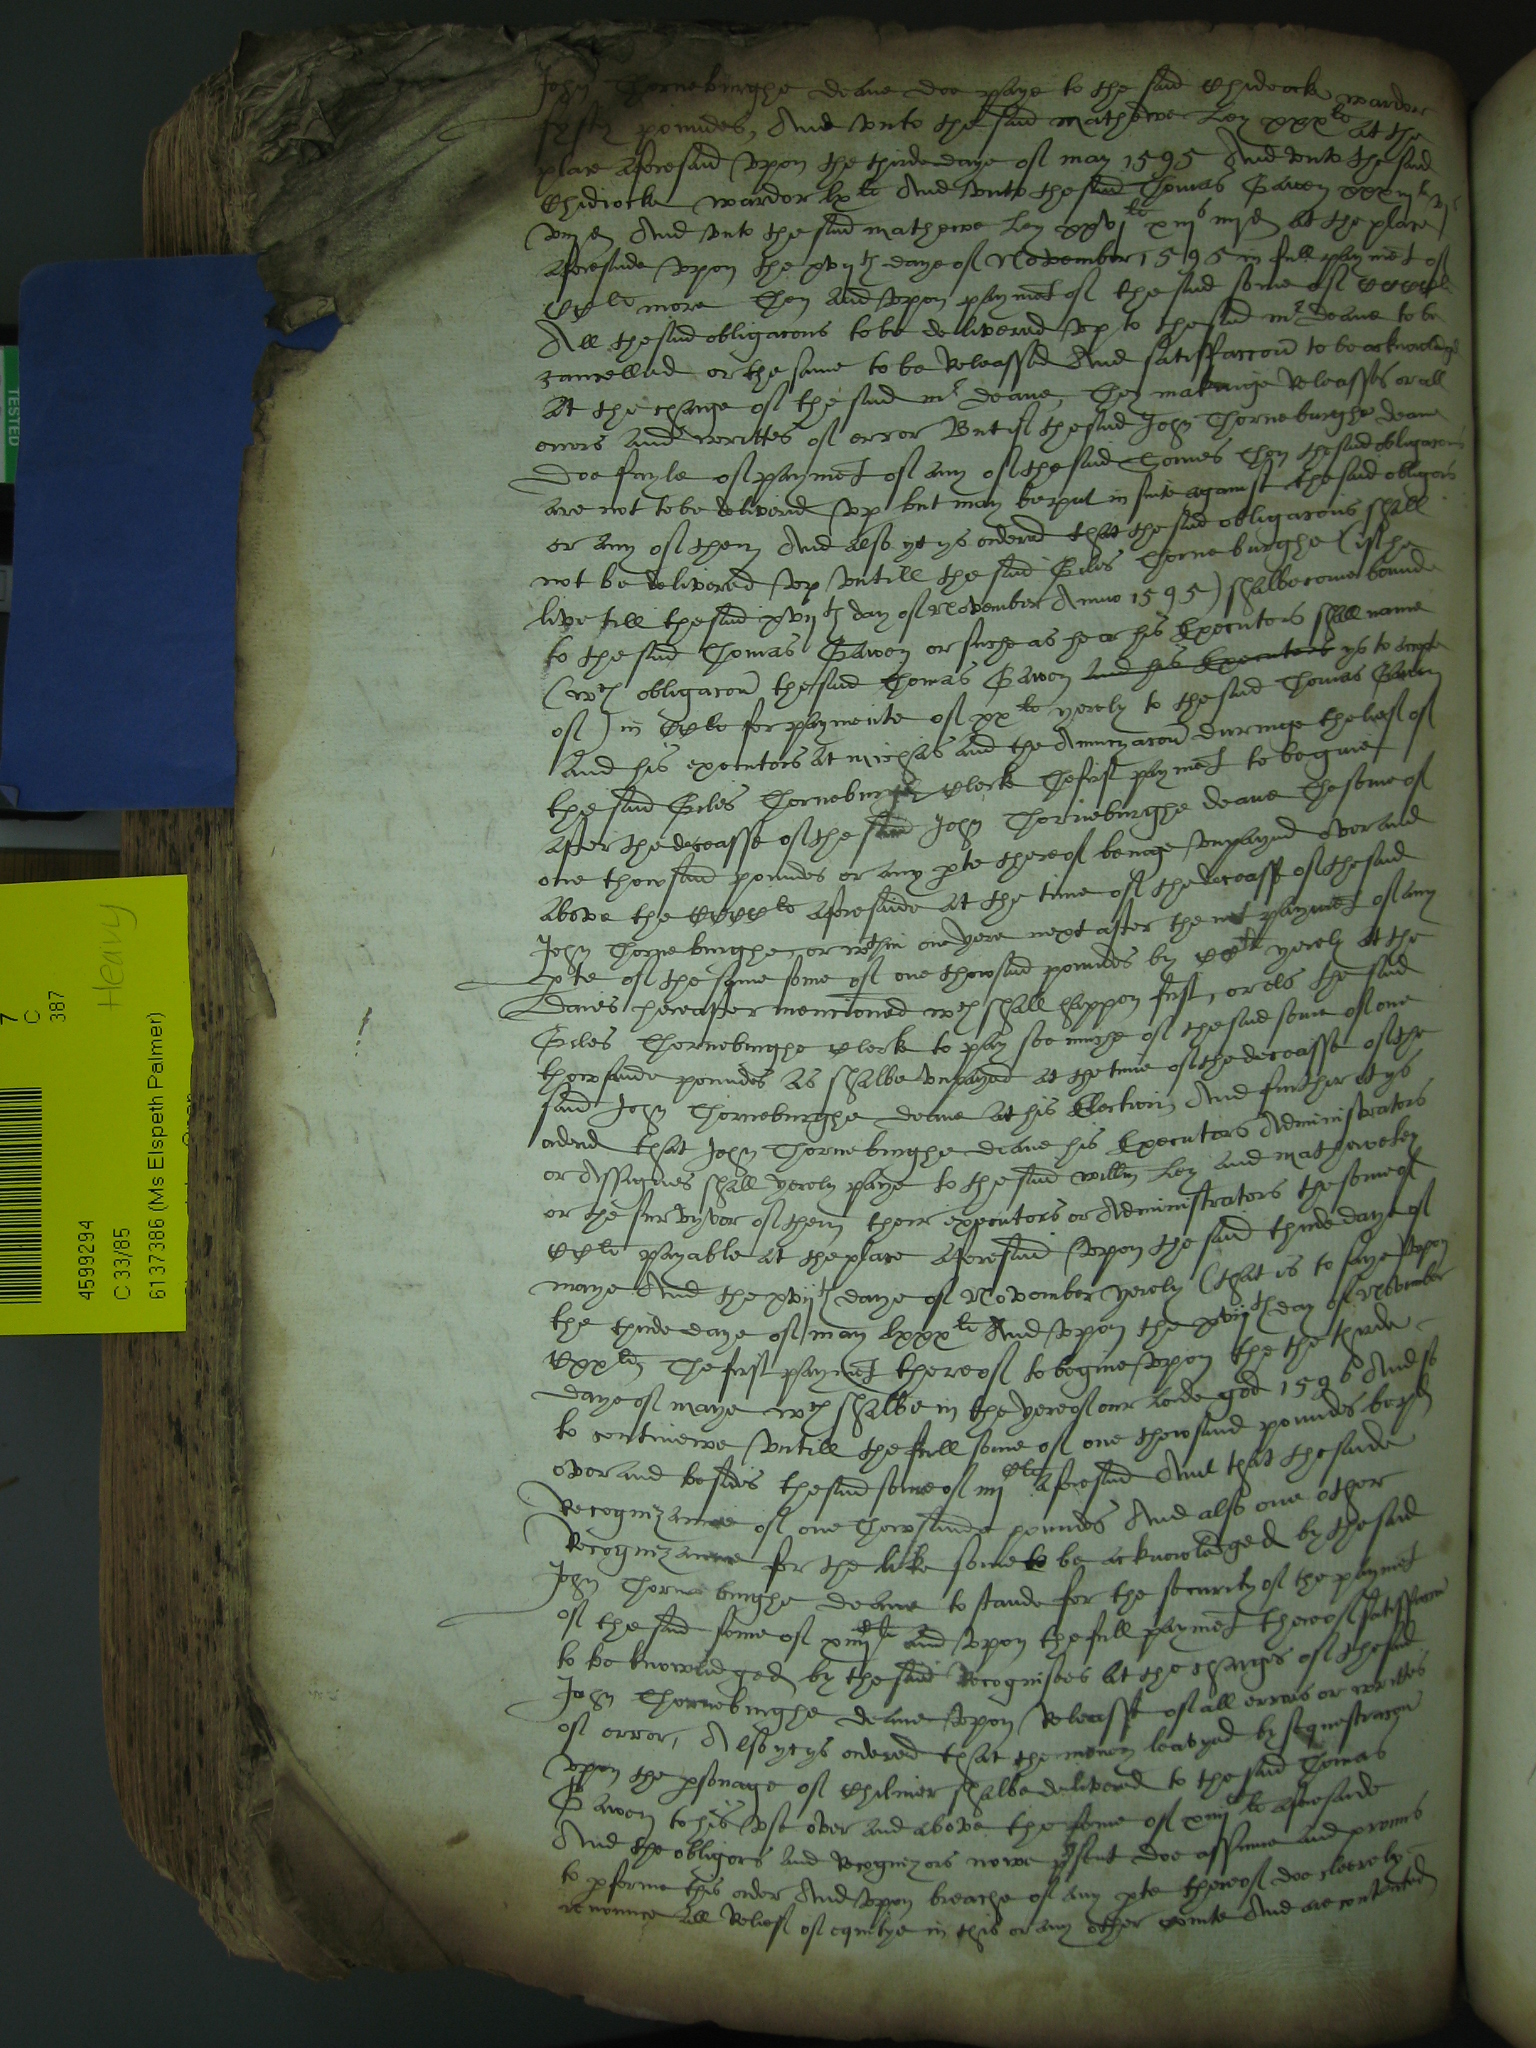 John Thorneburghe deane doe paye to the said Chidiock wardor
fyfty poundes, And vnto the said Mathewe Ley xxx li at the
place aforesaid vpon the thirde daye of may 1595 And vnto the said
Chidiocke wardor lx li And vnto the said Thomas Gawen xxxiij li vj s
viij d And vnto the said mathewe Ley xxvj li xiij s iiij d at the place
aforesaide vpon the xvij th daye of November 1595 in full paymēt of
CC li more Then and vpon paymēt of the said some of CCCC li
All the said obligacons to be delivered vp to the said mr Deane to be
cancelled or the same to be Releassed And satisfaccon to be acknowledged
At the charge of the said mr deane, They makinge Releasses of all
errors and writtes of error But if the said John Thorneburghe deane
doe fayle of paymēt of any of the said Somes Then the said obligacons
are not to be delivered vp but may be put in suite against the said obligors
or any of them And also yt ys ordered that the said obligacons shall
not be delivered vp vntill the said Giles Thorneburghe (if he
live till the said xvij th day of November Anno 1595) shalbecome bounde
to the said Thomas Gawen or suche as he or his Executors shall name
(wch obligacon the said Thomas Gawen and his Executors ys to accepte
of) in CC li for paymente of xx li yerely to the said Thomas Gawen
And his executors at Michas and the Annunciacon duringe the lief of
the said Giles Thorneburghe Clerke The first paymēt to begine
after the deceasse of the said John Thorneburghe deane The some of
one thowsand poundes or any pte thereof beinge vnpayed over and
above the CCCC li aforesaide at the time of the deceasse of the said
John Thorneburghe, or wthin one yere next after the not paymēt of any
pte of the same some of one thowsand poundes by CC li yerely at the
Daies hereafter mencioned wch shall happen first, or els the said
Giles Thorneburghe Clerk to pay soe muche of the said some of one
thowsande poundes as shalbe vnpayed at the time of the deceasse of the
said John Thorneburghe deane at his Election And further yt ys
ordered that John Thorneburghe deane his Executors Administrators
or Assignes shall yerely paye to the said Willm Ley and mathewe Ley
or the survyvor of them their executors or Administrators the some of
CC li payable at the place aforesaid vpon the said thirde daye of
maye And the xvij th daye of November yerely (that is to saye) vpon
the thirde daye of may lxxx li And vpon the xvij th day of November
Cxx li, The first paymēt thereof to begine vpon the the thirde
daye of maye wch shalbe in the yere of our Lorde god 1596 And so
to continewe vntill the full some of one thowsand poundes be pd
over and besides the said some of iiij C li aforesaid And that the saide
Recognizance of one Thowsande poundes And also one other
Recognizance for the like some to be acknowledged by the said
John Thorneburghe deane to stande for the security of the paymēt
of the said some of xiiij C li and vpon the full paymēt thereof satisfaccon
to be knowledged by the said Recognisees at the charges of the said
John Thorneburghe deane vpon Releasse of all errors or writtes
of error, Also yt ys ordered that the money leavyed by sequestracon
vpon the psonage of Chilmer shalbe delivered to the said Thomas
Gawen to his vse over and above the some of xiiij C li aforesaide
And the obligors and Recognizors nowe psent doe assume and promis
to pforme this order And vpon breache of any pte thereof doe cleerely
renounce all Relief of equitye in this or any other courte And are contented
TESTED
7
C
387
Heavy
4599294
C 33/85
6137386 (Ms Elspeth Palmer)